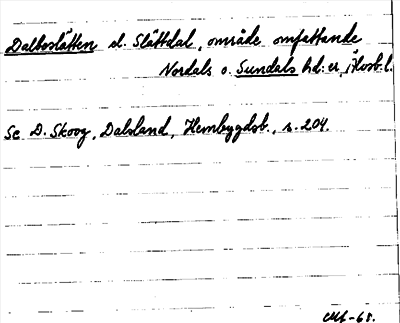 Dalboslätten el. Slättdal, område omfattande
Nordals o. Sundals hd:er, Älvsb. l.
Se D. Skoog, Dalsland, Hembygdsb., s. 204.
-68.